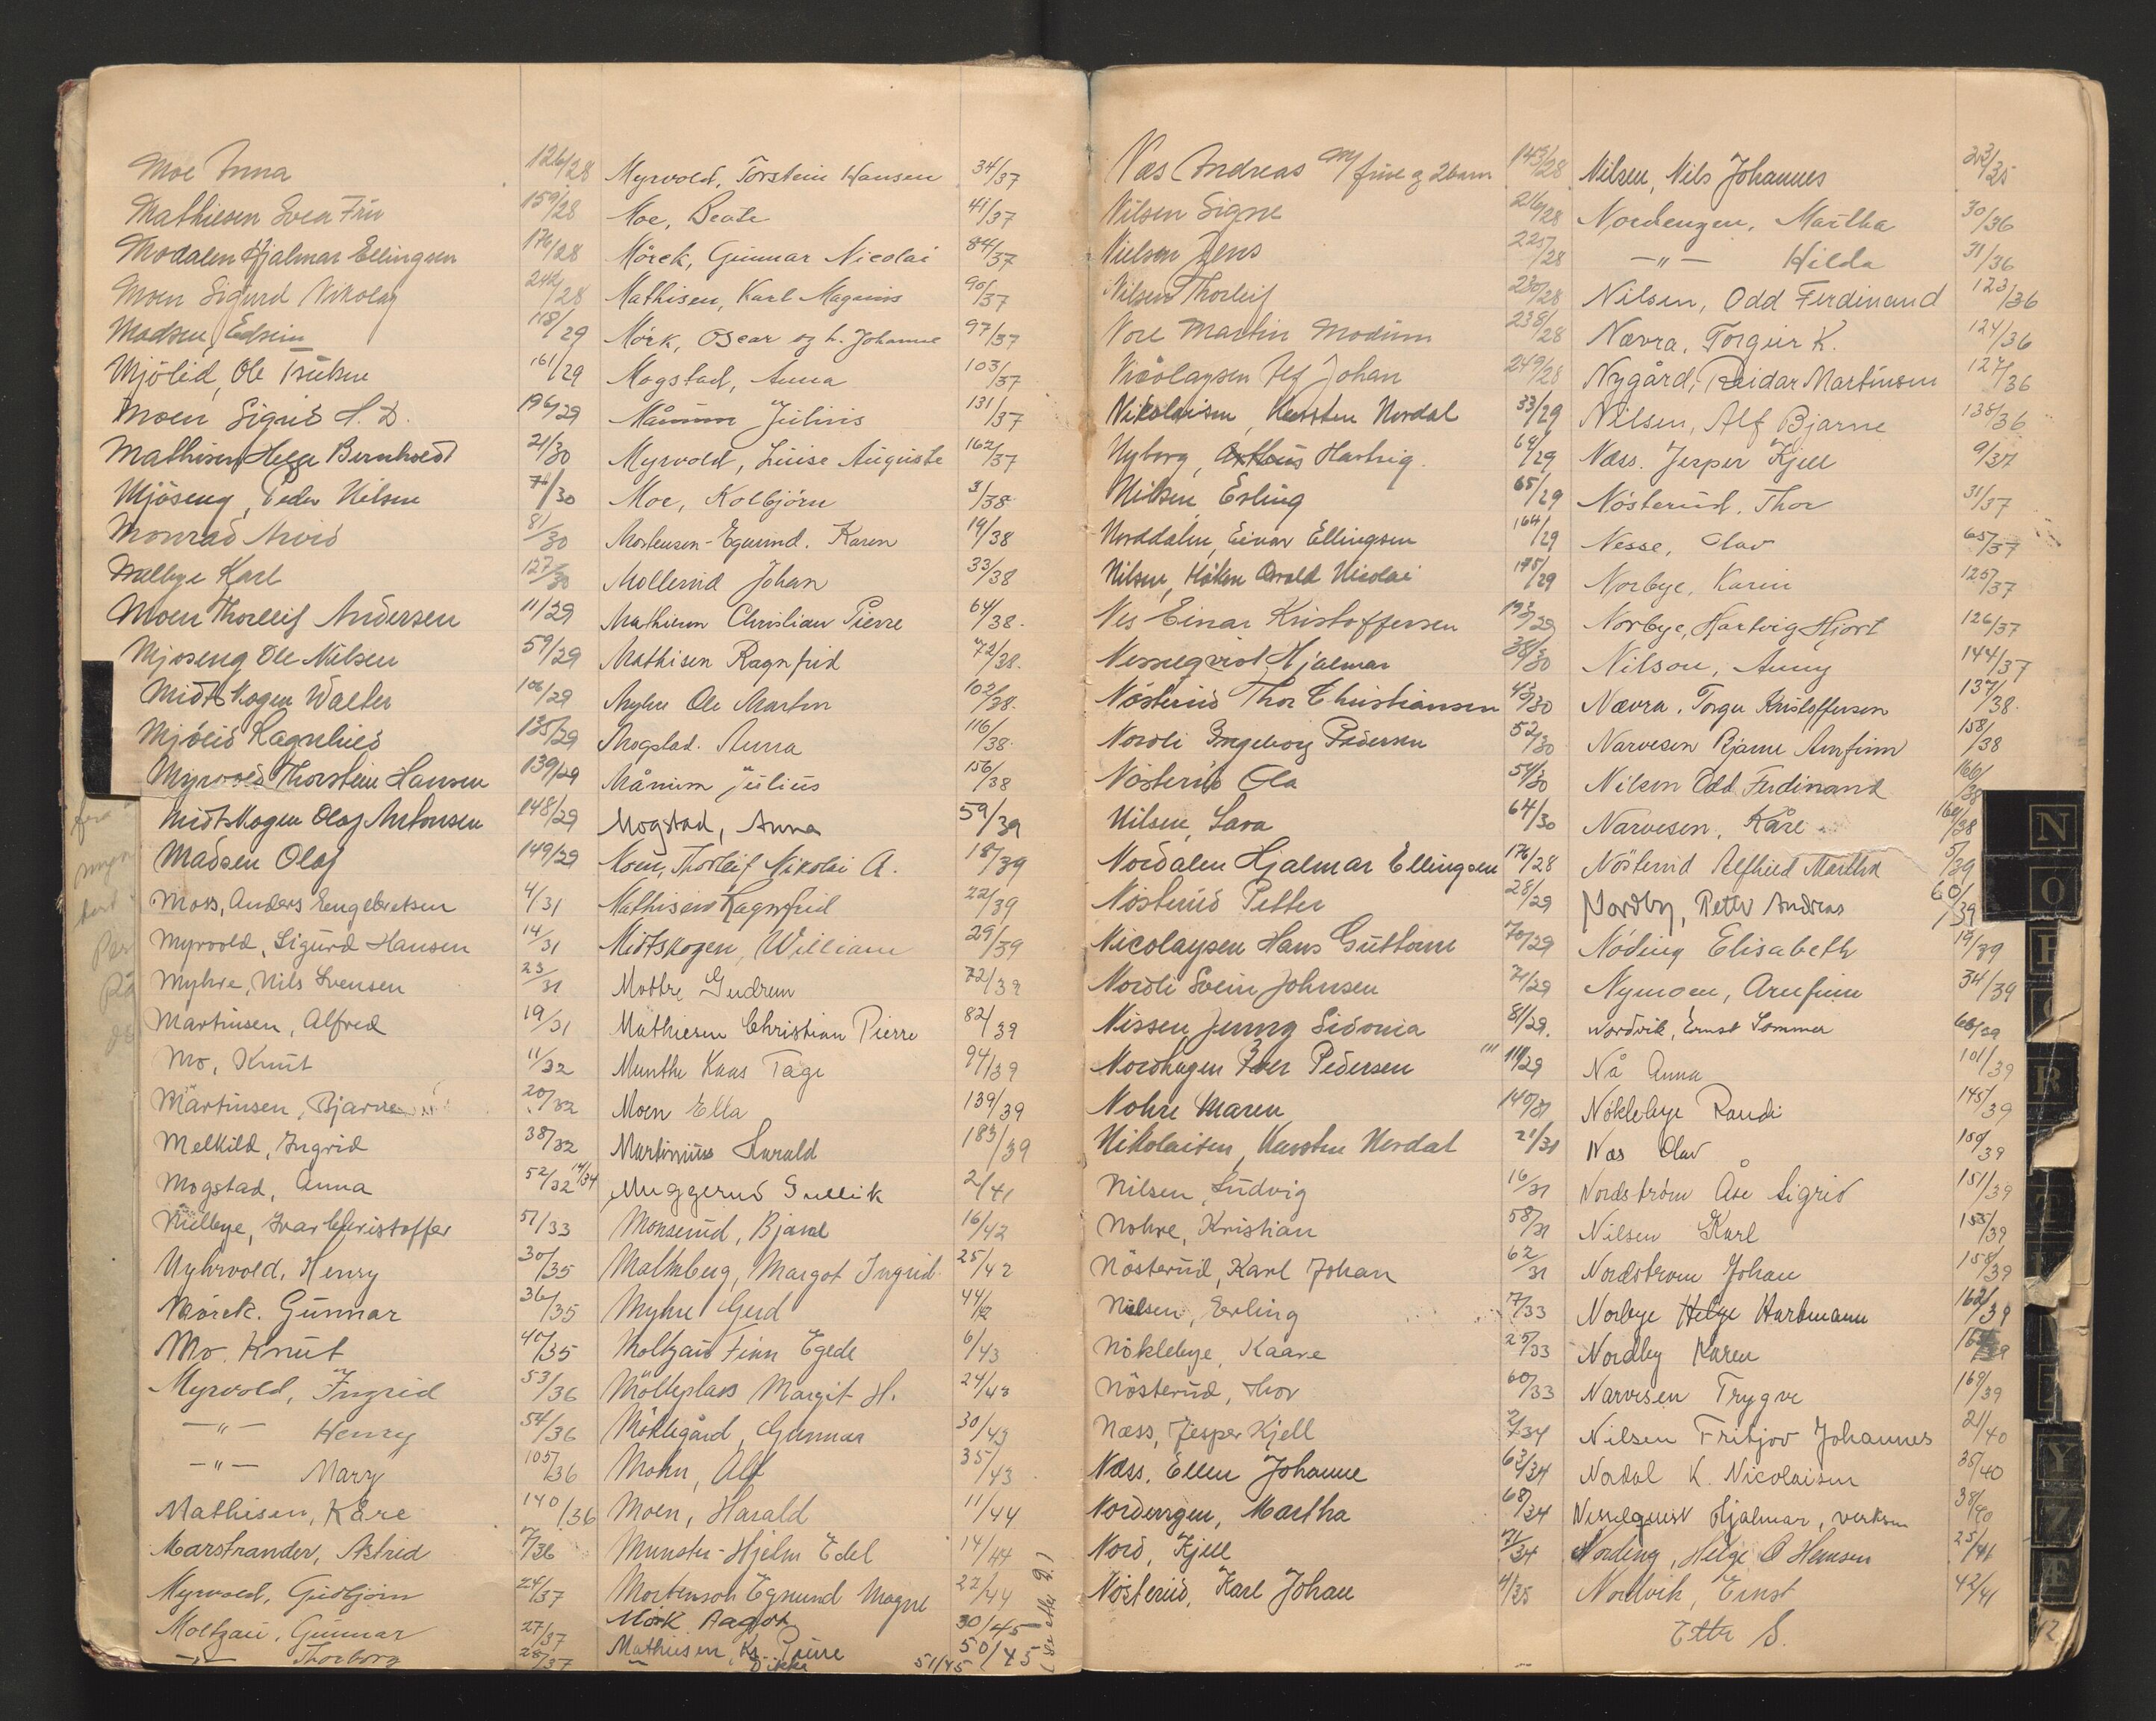 Moe Anna 126/28
Mathiesen Svea Fru 159/28
Modalen Hjalmar Ellingsen 176/28
Moen Sigurd Nikolay 242/28
Madsen, Edvin 118/29
Mjölid, Ole 161/29
Moen, Sigrid H. D. 196/29
Mathisen Helge Bernhardt 21/30
Mjöseng, Peder Nilsen 71/30
Monrad Arvid 81/30
Melbye Karl 127/30
Moen Thorleif Andersen 11/29
Mjøseng Ole Nilsen 59/29
Midtskogen Walter 106/29
Mjölid Ragnhild 135/29
Myrvold Thorstein Hansen 139/29
Midtskogen Olaf Antonsen 148/29
Madsen Olaf 149/29
Moss, Anders Engebretsen 4/31
Myrvold, Sigurd Hansen 14/31
Myhre, Nils Svensen 23/31
Martinsen, Alfred 19/31
Mo, Knut 11/32
Martinsen, Bjarne 20/32
Melkild, Ingrid 38/32
Mogstad, Anna 52/32 14/34
Melbye, Ivar Christoffer 51/33
Myhrvold, Henry 30/35
Mörck. Gunnar 36/35
Mo. Knut 40/35
Myrvold, Ingrid 53/36
—"— Henry 54/36
—"— Mary 105/36
Mathisen, Kåre 140/36
Marstrander, Astrid 7/36
Myrvold, Gudbjörn 24/37
Moltzau, Gunnar 27/37
—"— Thorborg 28/37
Myrvold, Torstein Hansen 34/37
Moe, Beate 41/37
Mörck, Gunnar Nicolai 84/37
Mathisen, Karl Magnus 90/37
Mörk, Oscar og h. Johanne 97/37
Mogstad, Anna 103/37
Månum Julius 131/37
Myrvold, Luise Auguste 162/37
Moe, Kolbjörn 3/38
Mortensen-Egnund. Karen 19/38
Mollerud Johan 33/38
Mathiesen Christian Pierre 64/38.
Mathisen Ragnfrid 72/38.
Myhre Ole Martin 102/38.
Mogstad. Anna 116/38.
Månum Julius 156/38
Mogstad, Anna 59/39
Moen, Thorleif Nikolai A. 18/39
Mathisen Ragnfrid 22/39
Midtskogen, William 29/39
Mottre Gudrun 72/39
Mathiesen Christian Pierre 82/39
Munthe Kaas Tage 94/39
Moen Ella 139/39
Martinius Harald 183/39
Muggerud Gullik 2/41
Monserud, Bjarne 16/42
Malmberg, Margot Ingrid 25/42
Myhre Gerd 44/42
Moltzau Finn Egede 6/43
Mölleplass Margit H. 24/43
Möllegård, Gunnar 30/43
Mohn, Alf 35/43
Moen, Harald 11/44
Munster-Hjelm Edel 14/44
Mortenson Egnund Magne 22/44
Mörk Aagot 30/45
Mathiesen, Kr. Pierre 50/45
51/45
(se etter Q.)
Næs Andreas m/ frue og 2 barn 143/28
Nilsen Signe 216/28
Nielsen Jens 225/28
Nilsen Thorleif 230/28
Nore Martin Modum 238/28
Nicolaysen Leif Johan 249/28
Nikolaisen, Karsten Nordal 33/29
Nyborg, Hartvig. 64/29
Nilsen, Erling 65/29
Norddalen, Einar Ellingsen 164/29
Nilsen, Håkon Arvold Nicolai 175/29
Nes Einar Kristoffersen 193/29
Nesselqvist Hjalmar 38/30
Nösterud Thor Christiansen 43/30
Nordli Ingeborg Pedersen 52/30
Nösterud Ola 54/30
Nilsen, Sara 64/30
Nordalen Hjalmar Ellingsen 176/28
Nösterud Petter 28/29
Nicolaysen Hans Guttorm 70/29
Nordli Svein Johnsen 71/29
Nissen Jenny Sidonia 81/29.
Nordhagen Iver Pedersen 111/29
Nohre Maren 140/31
Nikolaisen, Karsten Nordal 21/31
Nilsen, Ludvig 16/31
Nohre, Kristian 58/31
Nösterud, Karl Johan 62/31
Nielsen, Erling 7/33
Nöklebye, Kaare 25/33
Nösterud, Thor 60/33
Næss, Jesper Kjell 2/34
Næss, Ellen Johanne 63/34
Nordengen, Martha 68/34
Nord, Kjell 71/34
Nösterud, Karl Johan 4/35
Nilsen, Nils Johannes 23/35
Nordengen, Martha 30/36
—"— Hilda 31/36
Nilsen, Odd Ferdinand 123/36
Nævra, Torgeir K. 124/36
Nygård, Reidar Martinsen 127/36
Nilsen, Alf Bjarne 138/36
Næss. Jesper Kjell 9/37
Nösterud. Thor 31/37
Nesse, Olav 65/37
Norbye, Karin 125/37
Norbye, Hartvig Hjort 126/37
Nilson, Anny 144/37
Nævra. Torger Kristoffersen 137/38.
Narvesen Bjarne Arnfinn 158/38
Nilsen Odd Ferdinand 166/38
Narvesen, Kåre 160/38
Nösterud Alfhild Martha 5/39
Nordby, Petter Andreas 60/39
Nöding Elisabeth 19/39
Nymoen, Arnfinn 34/39
Nordvik, Ernst Sommer 66/39
Nå Anna 101/39
Nöklebye Randi 145/39
Næs Olav 150/39
Nordström Åse Sigrid 151/39
Nilsen Karl 155/39
Nordstrøm Johan 158/39
Norbye Helge Hartmann 162/39
Nordby Karen
Narvesen Trygve 169/39
Nilsen Fritjov Johannes 21/40
Nordal K. Nicolaisen 35/40
Nesselquist Hjalmar, verksm 38/40
Nording, Helge O Hansen 25/41
Nordvik, Ernst 42/41
Etter S.
N
O
P
R
Y
Z
Æ